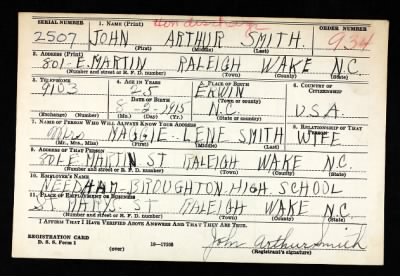 SERIAL NUMBER 1. NAME (Print) ORDER NUMBER
2507 JOHN ARTHUR SMITH. 934
(First) (Middle) (Last)
2. ADDRESS (Print)
801-E. MARTIN RALEIGH WAKE N.C.
(Number and street or R. F. D. number) (Town) (County) (State)
3. TELEPHONE 4. AGE IN YEARS 5. PLACE OF BIRTH 6. COUNTRY OF CITIZENSHIP
9103 25 ERWIN
DATE OF BIRTH (Town or county)
8-2-1915 N.C. U.S.A.
(Exchange) (Number) (Mo.) (Day) (Yr.) (State or country)
7. NAME OF PERSON WHO WILL ALWAYS KNOW YOUR ADDRESS 8. RELATIONSHIP OF THAT PERSON
Mrs MAGGIE-LENE SMITH WIFE
(Mr., Mrs., Miss) (First) (Middle) (Last)
9. ADDRESS OF THAT PERSON
801-E. MARTIN ST RALEIGH WAKE N.C.
(Number and street or R. F. D. number) (Town) (County) (State)
10. EMPLOYER'S NAME
NEEDHAM-BROUGHTON HIGH SCHOOL
11. PLACE OF EMPLOYMENT OR BUSINESS
ST. MARYS-ST RALEIGH WAKE N.C.
(Number and street or R. F. D. number) (Town) (County) (State)
I AFFIRM THAT I HAVE VERIFIED ABOVE ANSWERS AND THAT THEY ARE TRUE.
REGISTRATION CARD
D. S. S. Form 1 (over) John Arthur Smith
(Registrant's signature)